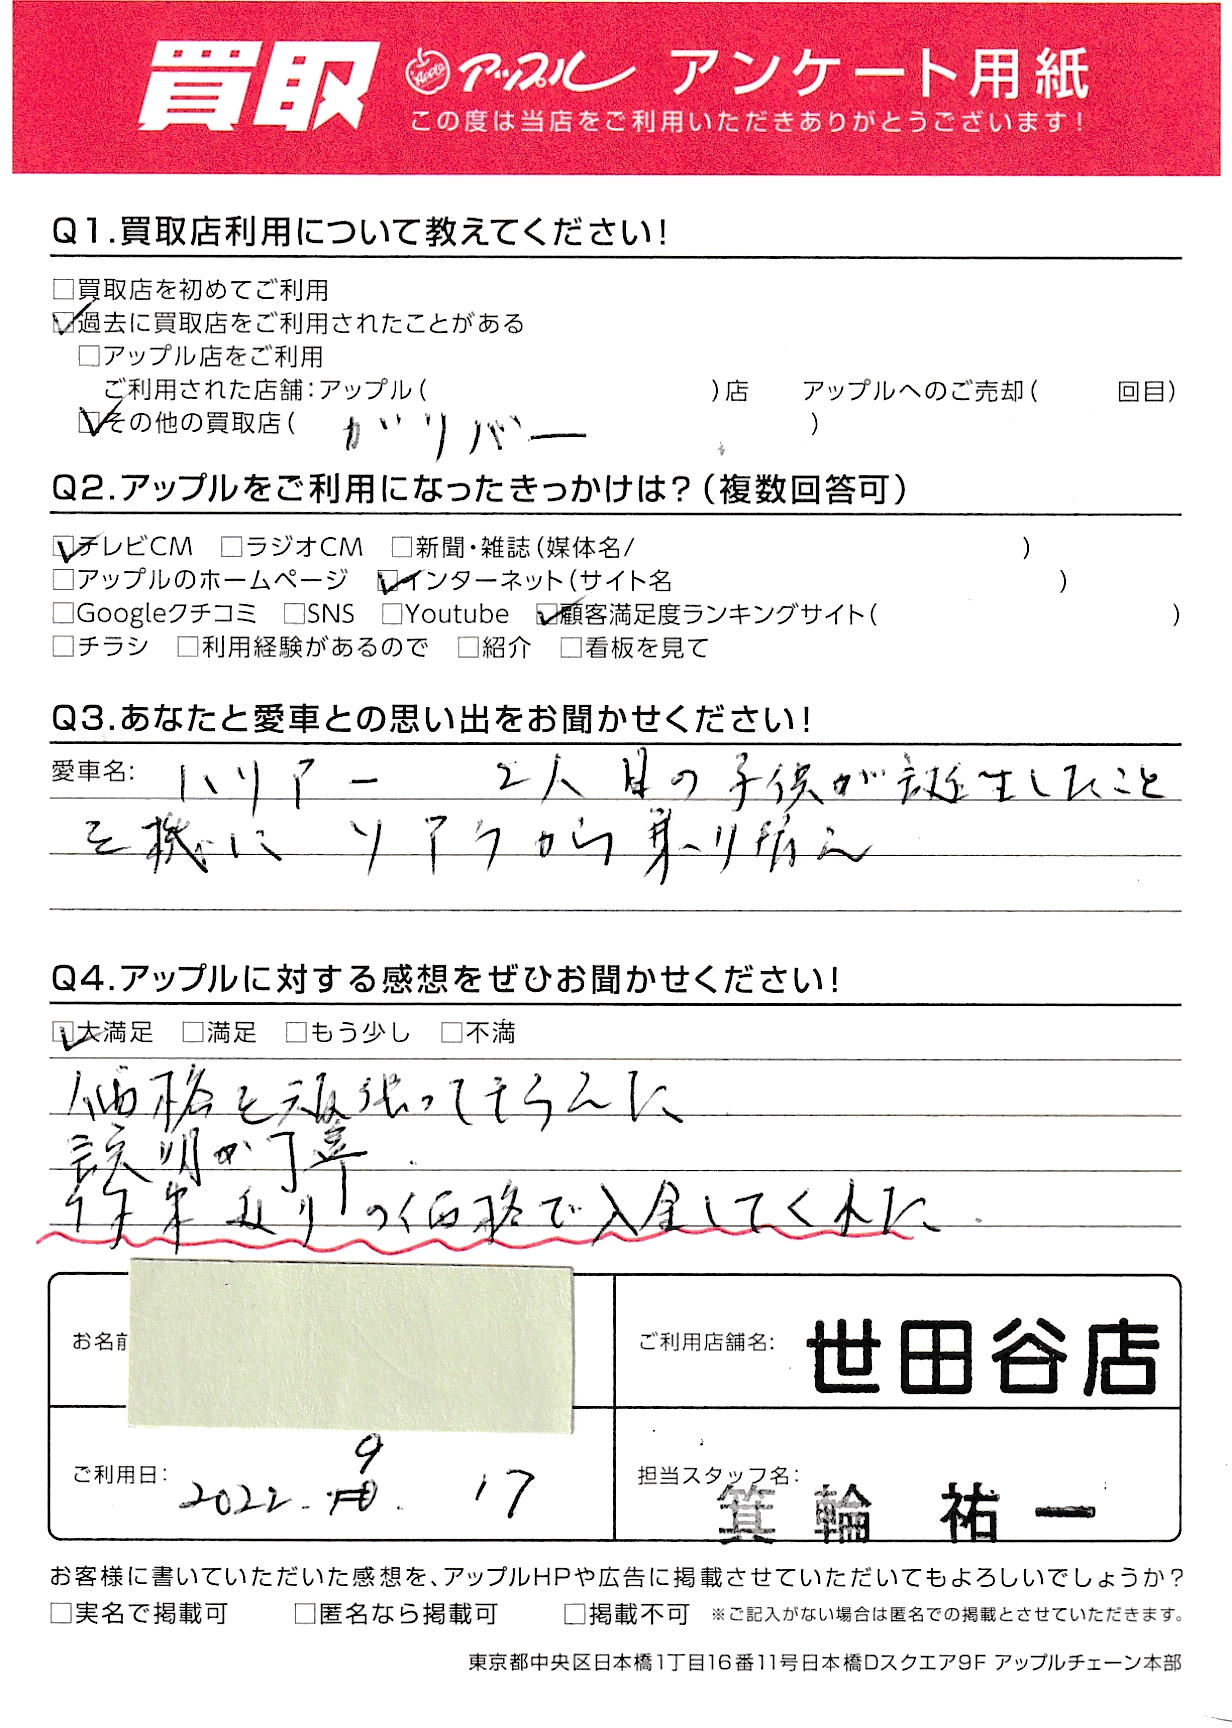 買取 Apple アップル アンケート用紙
この度は当店をご利用いただきありがとうございます!
Q1.買取店利用について教えてください!
□買取店を初めてご利用
☑過去に買取店をご利用されたことがある
□アップル店をご利用
ご利用された店舗:アップル( )店 アップルへのご売却( 回目)
☑その他の買取店( ガリバー )
Q2.アップルをご利用になったきっかけは?(複数回答可)
☑テレビCM □ラジオCM □新聞・雑誌(媒体名/ )
□アップルのホームページ ☑インターネット(サイト名 )
□Googleクチコミ □SNS □Youtube ☑顧客満足度ランキングサイト( )
□チラシ □利用経験があるので □紹介 □看板を見て
Q3.あなたと愛車との思い出をお聞かせください!
愛車名: ハリアー 2人目の子供が誕生したこと
を機に ソアラから乗り替え
Q4.アップルに対する感想をぜひお聞かせください!
☑大満足 □満足 □もう少し □不満
価格を頑張ってもらえた
説明が丁寧
約束通りの価格で入金してくれた.
お名前
ご利用店舗名: 世田谷店
ご利用日: 2022. 9. 17
担当スタッフ名: 箕輪 祐一
お客様に書いていただいた感想を、アップルHPや広告に掲載させていただいてもよろしいでしょうか?
□実名で掲載可 □匿名なら掲載可 □掲載不可 ※ご記入がない場合は匿名での掲載とさせていただきます。
東京都中央区日本橋1丁目16番11号日本橋Dスクエア9F アップルチェーン本部